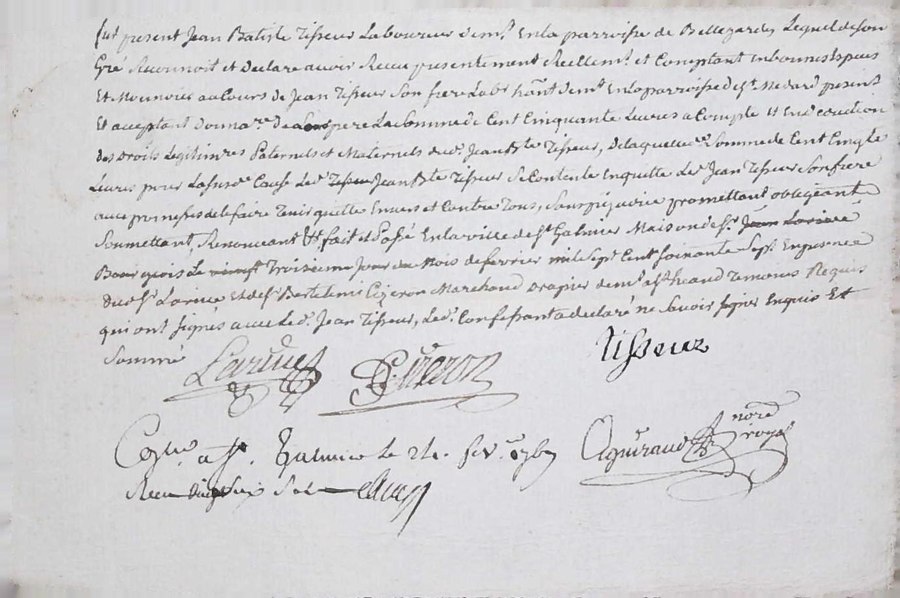 fut present Jean Batiste Tisseur Laboureur dem.t En la parroisse de Bellegarde, Lequel de son
Gré Reconnoit et Declare avoir Receu presentement Reellem.t et Comptant En bonnes Especes
Et Monnoies au Cours de Jean Tisseur son frere Lab.r hân.t dem.t En la parroisse de S.t Medard present
Et acceptant donna.re de Leur pere La somme de Cent Cinquante Livres a Compte Et En deduction
des Droits Legitimres Paternels et Maternels dud.t Jean B.te Tisseur, de laquelle Somme de Cent Cinq.te
Livres pour La susd.e Cause Led.t Jean B.te Tisseur se Contente En quitte Led.t Jean Tisseur son frere
avec promesses de le faire Tenir quitte Envers et Contre Tous, sans prejudice promettant obligeant
Soumettant, Renonceant &t fait et Passé En la ville de S.t Galmier Maison de S.r
Bourgeois Le Troisieme Jour du Mois de fevrier mil Sept Cent Soixante Sept En presence
dud. S.r Larive et de S.r Bartelemi Pigeron Marchand drapier dem.t a S.t heand Temoins Requis
qui ont signés avec Led.t Jean Tisseur, Led.t Confessant a declaré ne Savoir signer Enquis Et
Sommé
Larive Pigeron Tisseur
a S.t Galmier le 24. fev.r 1767
Receu Six Sols
Aguiraud no.re royal